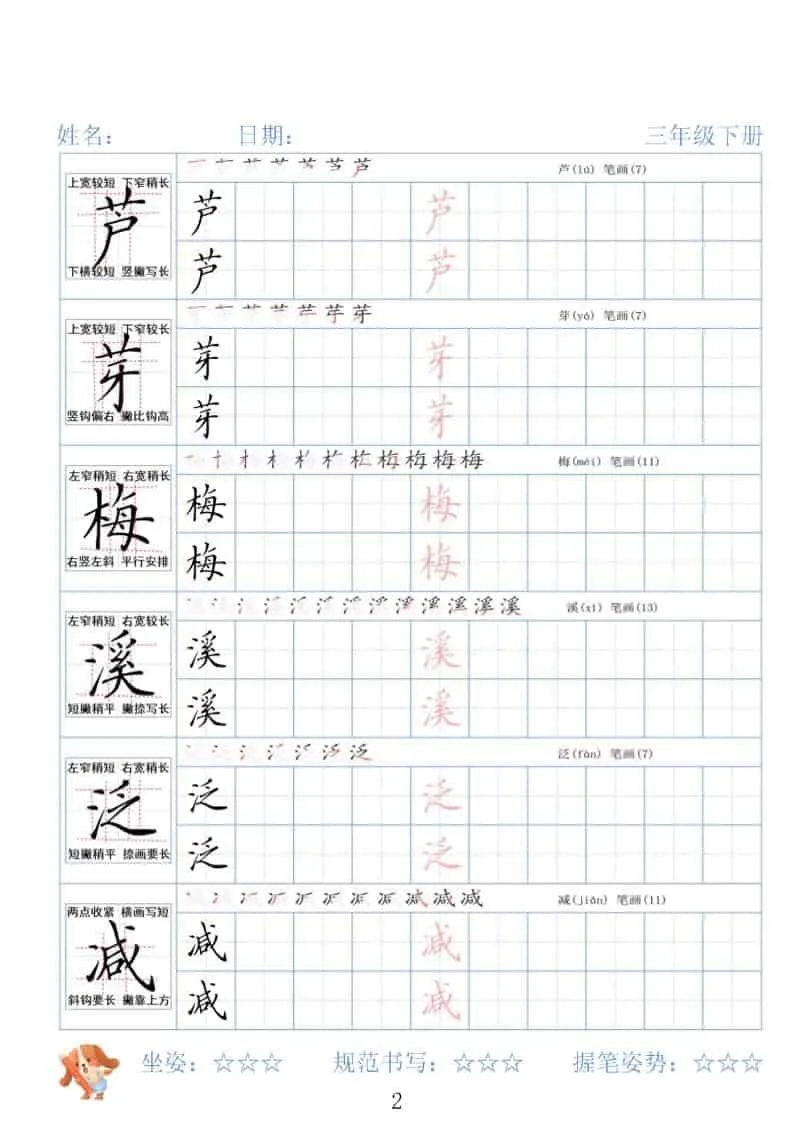 姓名： 日期： 三年级下册
芦(lú) 笔画(7)
上宽较短 下窄稍长
芦
下横较短 竖撇写长
芦 芦
芦 芦
芽(yá) 笔画(7)
上宽较短 下窄较长
芽
竖钩偏右 撇比钩高
芽 芽
芽 芽
梅(méi) 笔画(11)
左窄稍短 右宽稍长
梅
右竖左斜 平行安排
梅 梅
梅 梅
溪(xī) 笔画(13)
左窄稍短 右宽较长
溪
短撇稍平 撇捺写长
溪 溪
溪 溪
泛(fàn) 笔画(7)
左窄稍短 右宽稍长
泛
短撇稍平 捺画要长
泛 泛
泛 泛
减(jiǎn) 笔画(11)
两点收紧 横画写短
减
斜钩要长 撇靠上方
减 减
减 减
坐姿：☆☆☆ 规范书写：☆☆☆ 握笔姿势：☆☆☆
2